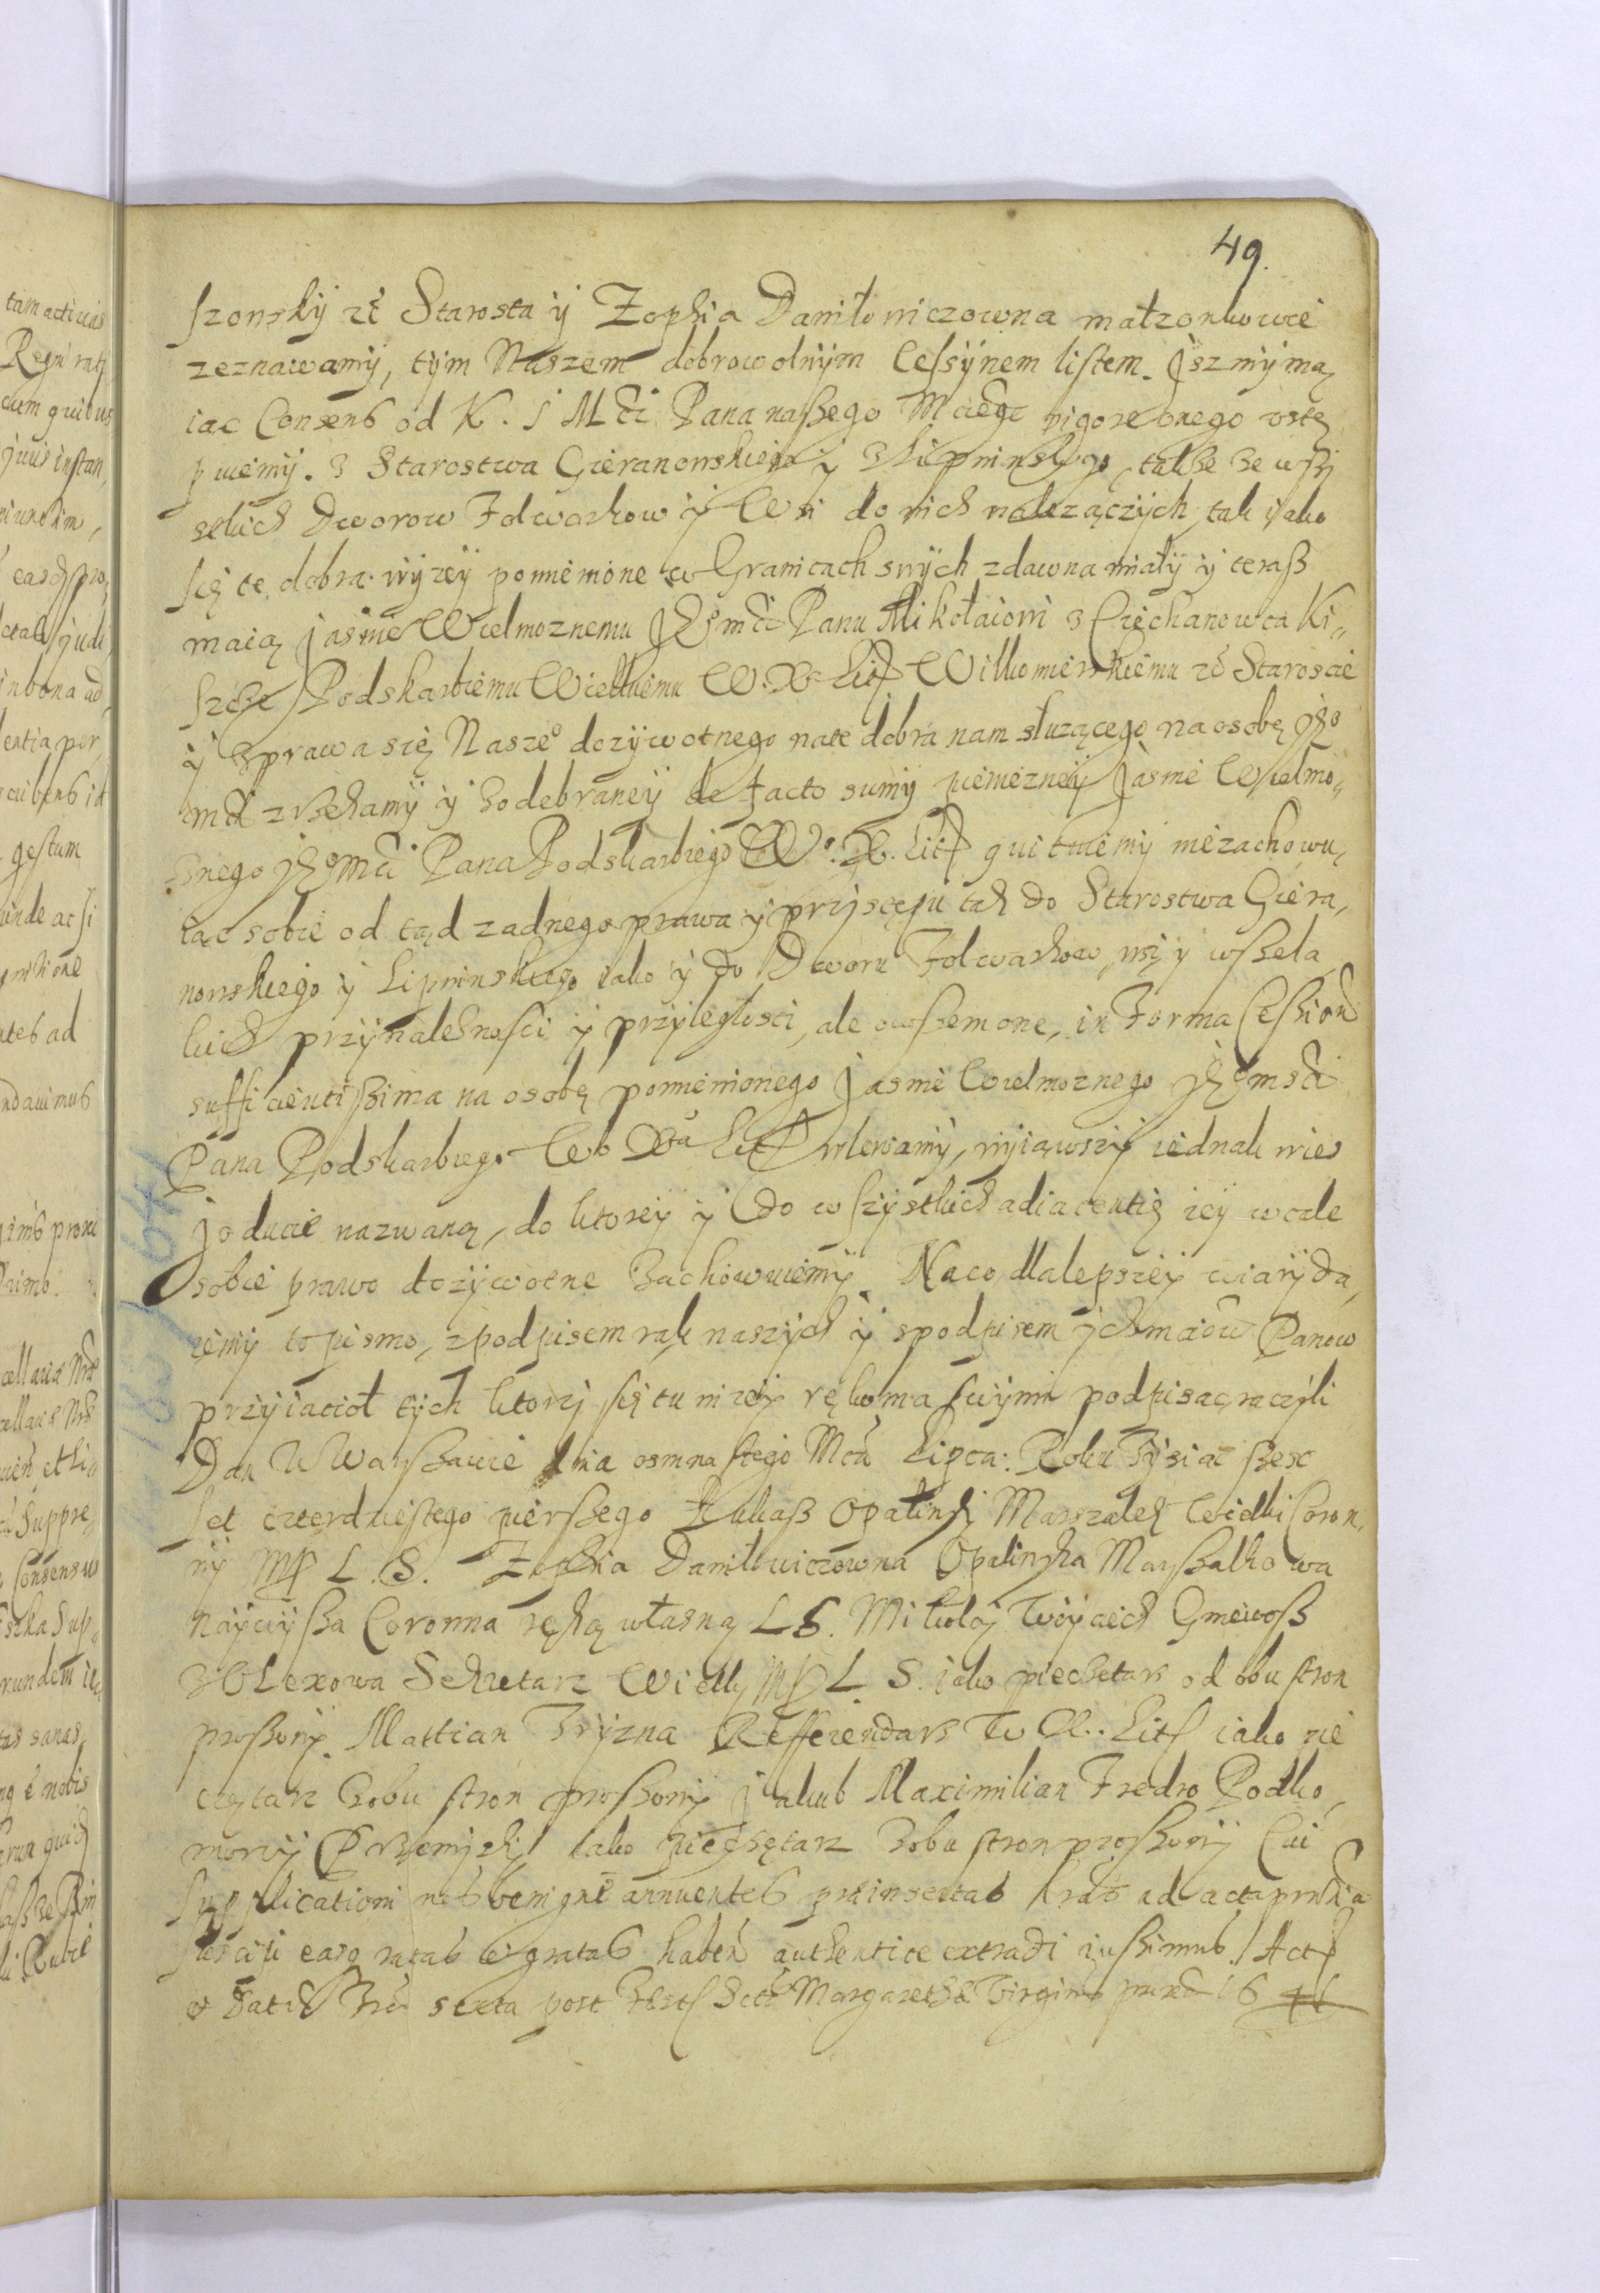 49.
szonsky etc Starosta y Zophia Daniłowiczowna małzonkowie
zeznawamy, tym Naszem dobrowolnym Cessynem listem. Jsz my ma,
iąc Consens od K. J Mći Pana naszego Mćiego vigore onego ustę,
puiemy. z Starostwa Gieranonskiego y z Lipninskiego, takze ze wszy
stkich Dworow Folwarkow y Wsi do nich nalezączych, tak iako
się te dobra wyzey pomienione w Granicach swych zdawna miały y teraß
maią Jasnie Wielmoznemu JEo mći Panu Mikołaiowi z Ciechanowca Ki„
szce Podskarbiemu Wielkiemu W. X. Litt Wilkomierskiemu etc Staroscie
y zprawa się Nasze° dozywotnego na te dobra nam słuzącego na osobę JEo
mći zrzekamy y z odebraney de facto sumy pieniezney Jasnie Wielmo„
znego JEo mći Pana Podskarbiego W°. X. Litt quituiemy niezachowu,
iąc sobie od tąd zadnego prawa y przystępu tak do Starostwa Giera,
nonskiego y Lipninskiego iako y do Dworu Folwarkow, wsi y wszela
kich przynaleznosci y przyległosci, ale owszem one, in Forma Cession
sufficientissima na osobę pomienionego Jasnie Wielmoznego JEo msći
Pana Podskarbiego W° Xa Litt wlewamy, wyiąwszy iednak wies
Joducie nazwaną, do ktorey y do wszystkich adiacentię iey wcale
sobie prawo dozywotne zachowuiemy. Naco dla lepszey wiary da,
iemy to pismo, z podpisem rąk naszych y spodpisem ychmćiow Panow
przyiacioł tych ktorzy się tu nizey rękoma swymi podpisac raczyli
Dan w Warszawie dnia osmnastego Mća Lipca. Roku Tysiąc szesc
set czterdziestego pierszego Łukasz Opalinsky Marszałek Wielki Coron,
ny MP L. S. Zophia Daniłowiczowna Opalinska Marszałkowa
naywyssza Coronna ręką własną LS. Mikołay Woyciech Gniewosz
z Olexowa Sekretarz Wielky MP L. S. iako pieczetarz od obu stron
proszony. Marcian Tryzna Refferendarz W X. Litt iako pie
czętarz z obu stron proszony Jakub Maximilian Fredro Podko,
morzy Przemysky iako pieczętarz z obu stron proszony Cui
supplicationi nos benigne annuentes praeinsertas lras ad acta prñtia
suscipi easq ratas et gratas haben authentice extradi iussimus. Act
et Dat Fria sexta post Festt Sctae Margarethae Virginis 16